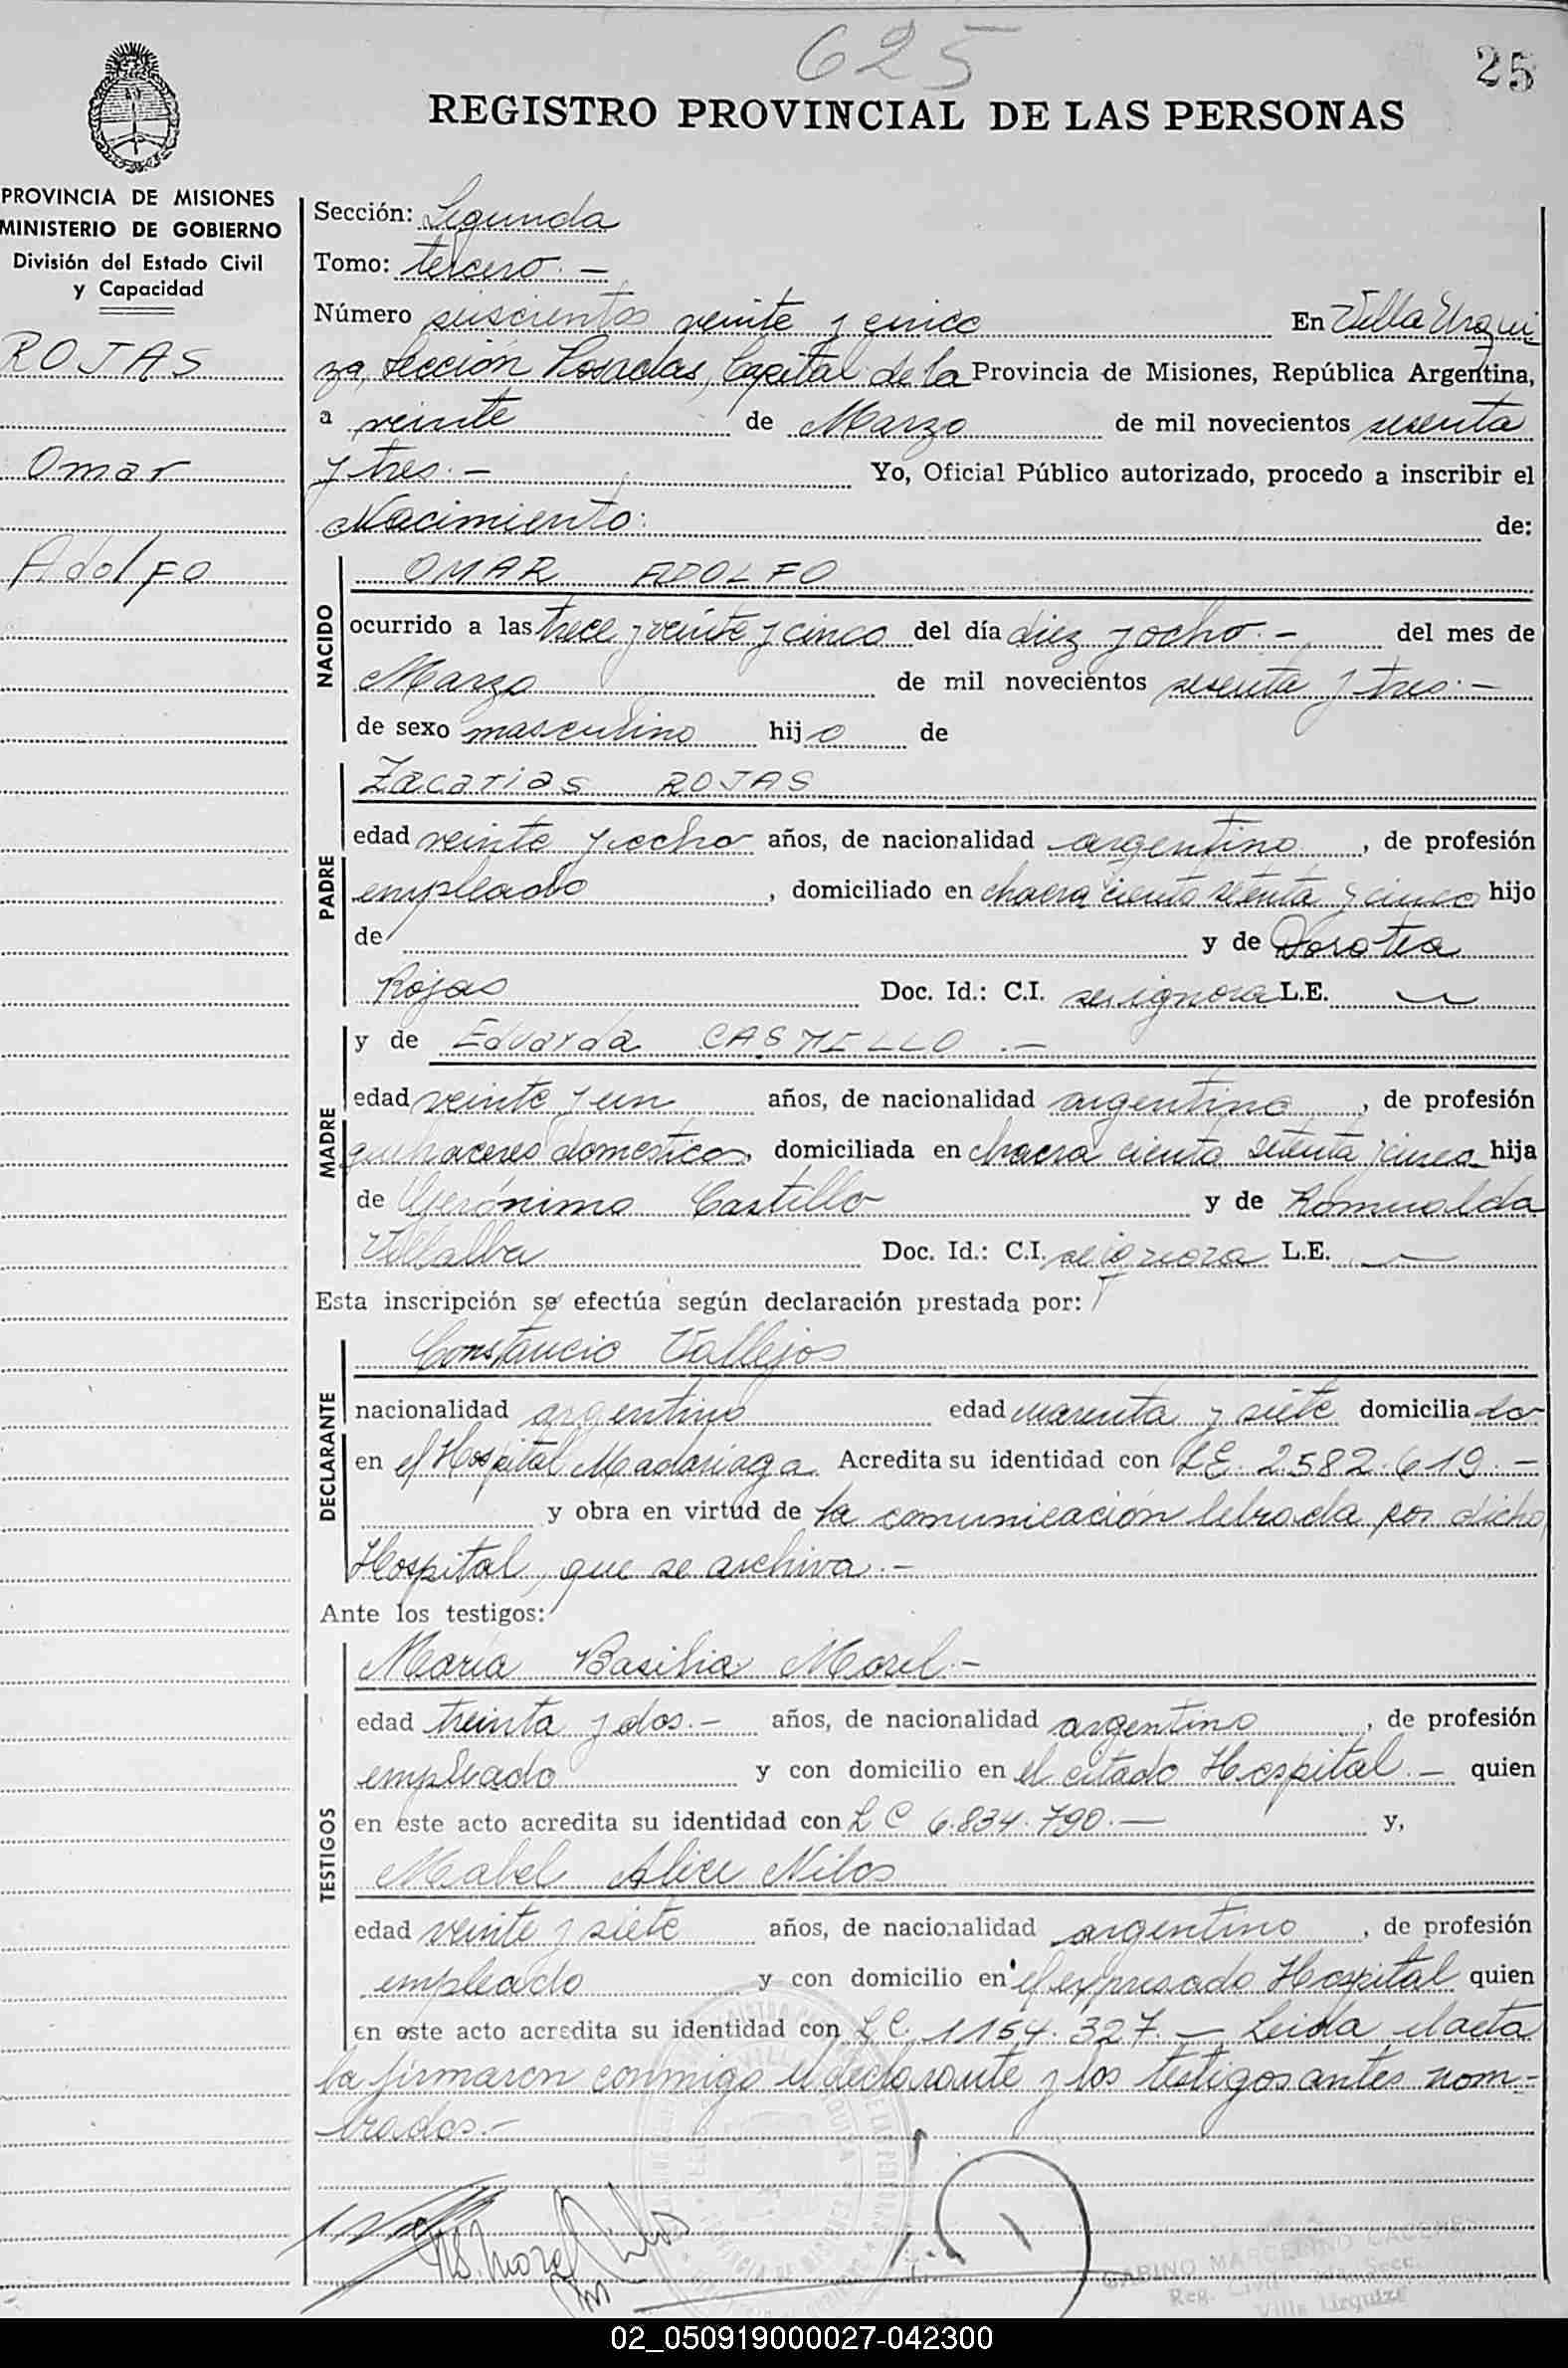 625
25
REGISTRO PROVINCIAL DE LAS PERSONAS
PROVINCIA DE MISIONES
MINISTERIO DE GOBIERNO
División del Estado Civil
y Capacidad
ROJAS
Omar
Adolfo
Sección: Segunda
Tomo: tercero.-
Número seiscientos veinte y cinco En Villa Urqui
za, Sección Posadas, Capital de la Provincia de Misiones, República Argentina,
a veinte de Marzo de mil novecientos sesenta
y tres.- Yo, Oficial Público autorizado, procedo a inscribir el
Nacimiento: de:
NACIDO
OMAR ADOLFO
ocurrido a las trece y veinte y cinco del día diez y ocho.- del mes de
Marzo de mil novecientos sesenta y tres.-
de sexo masculino hijo de
PADRE
Zacarias ROJAS
edad veinte y ocho años, de nacionalidad argentino, de profesión
empleado, domiciliado en chacra ciento setenta y cinco hijo
de y de Dorotea
Rojas Doc. Id.: C.I. se ignora L.E.
MADRE
y de Eduarda CASTILLO.-
edad veinte y un años, de nacionalidad argentina, de profesión
quehaceres domesticos, domiciliada en chacra ciento setenta y cinco hija
de Gerónimo Castillo y de Romualda
Villalba Doc. Id.: C.I. se ignora L.E.
Esta inscripción se efectúa según declaración prestada por:
DECLARANTE
Constancio Vallejos
nacionalidad argentino edad cuarenta y siete domiciliado
en el Hospital Madariaga. Acredita su identidad con LE. 2582.619.-
y obra en virtud de la comunicación librada por dicho
Hospital, que se archiva.-
Ante los testigos:
TESTIGOS
María Basilia Morel.-
edad treinta y dos.- años, de nacionalidad argentino, de profesión
empleado y con domicilio en el citado Hospital.- quien
en este acto acredita su identidad con LC 6.834.790.- y,
Mabel Alice
edad veinte y siete años, de nacionalidad argentino, de profesión
empleado y con domicilio en el expresado Hospital quien
en este acto acredita su identidad con LC. 1154.327.- Leida el acta
la firmaron conmigo el declarante y los testigos antes nom-
brados.-
GABINO MARCELINO CACERES
Reg. Civil Secc.
Villa Urquiza
02_050919000027-042300